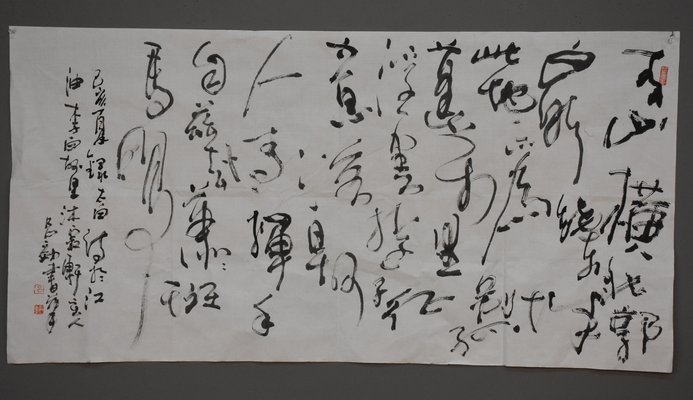 青山橫北郭
白水繞東城
此地一為別孤
蓬万里征
浮雲游子
意落日故
人情揮手
自茲去蕭〻班
馬鳴
己亥夏錄太白詩於江
油李白故里軒主人
書